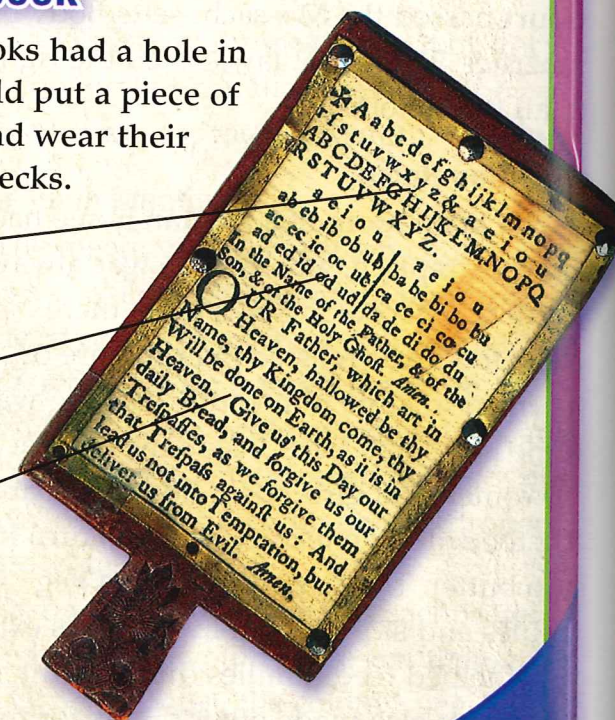 oks had a hole in
ld put a piece of
nd wear their
ecks.
✠Aabcdefghijklmnopq
rſstuvwxyz& a e i o u
ABCDEFGHIJKLMNOPQ
RSTUVWXYZ.
a e i o u | a e i o u
ab eb ib ob ub | ba be bi bo bu
ac ec ic oc uc | ca ce ci co cu
ad ed id od ud | da de di do du
In the Name of the Father, & of the
Son, & of the Holy Ghoſt. Amen.
OUR Father, which art in
Heaven, hallowed be thy
Name, thy Kingdom come, thy
Will be done on Earth, as it is in
Heaven. Give us this Day our
daily Bread, and forgive us our
Treſpaſſes, as we forgive them
that Treſpaſs againſt us : And
lead us not into Temptation, but
deliver us from Evil. Amen.